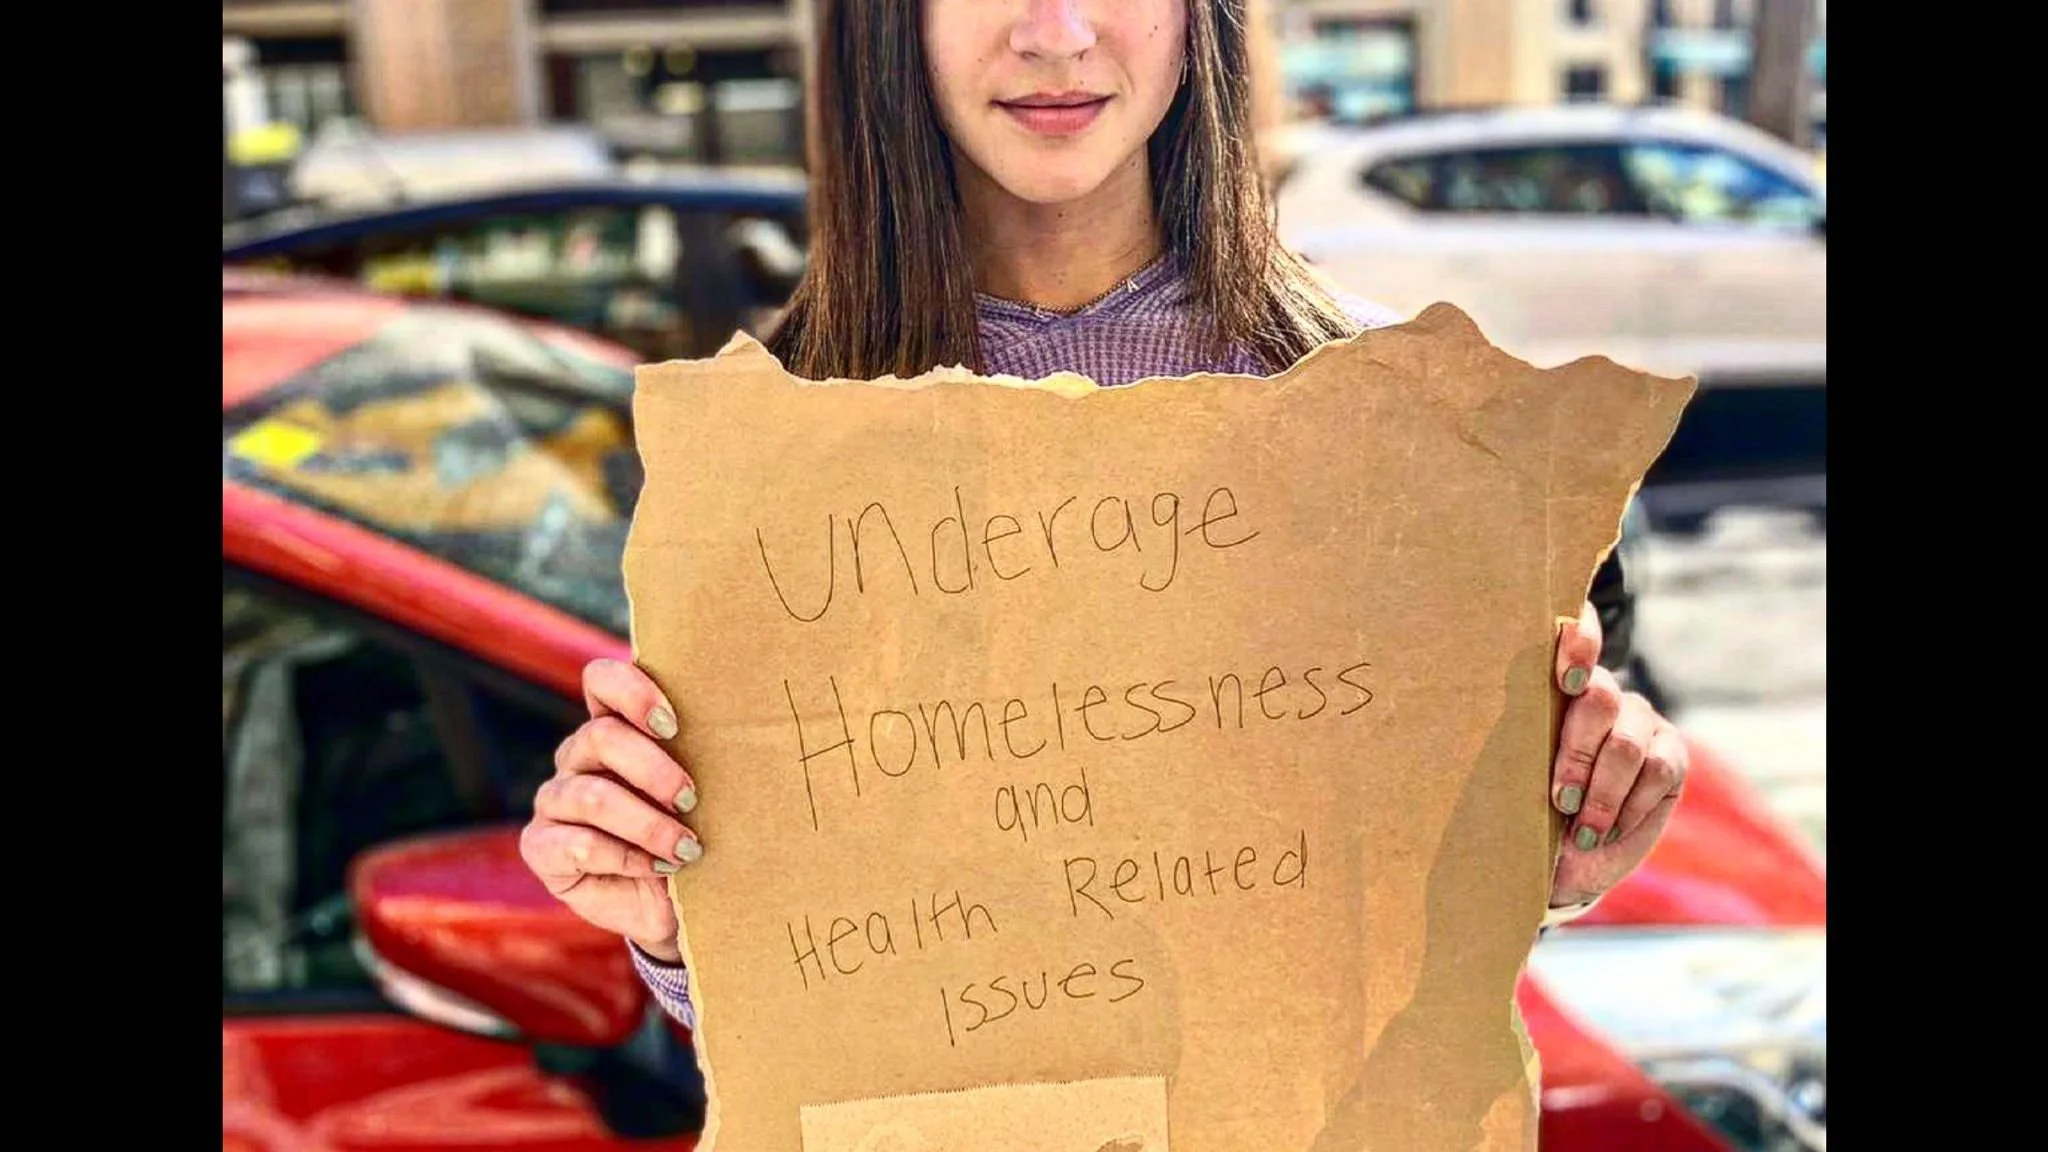 Underage
Homelessness
and
Health Related
Issues